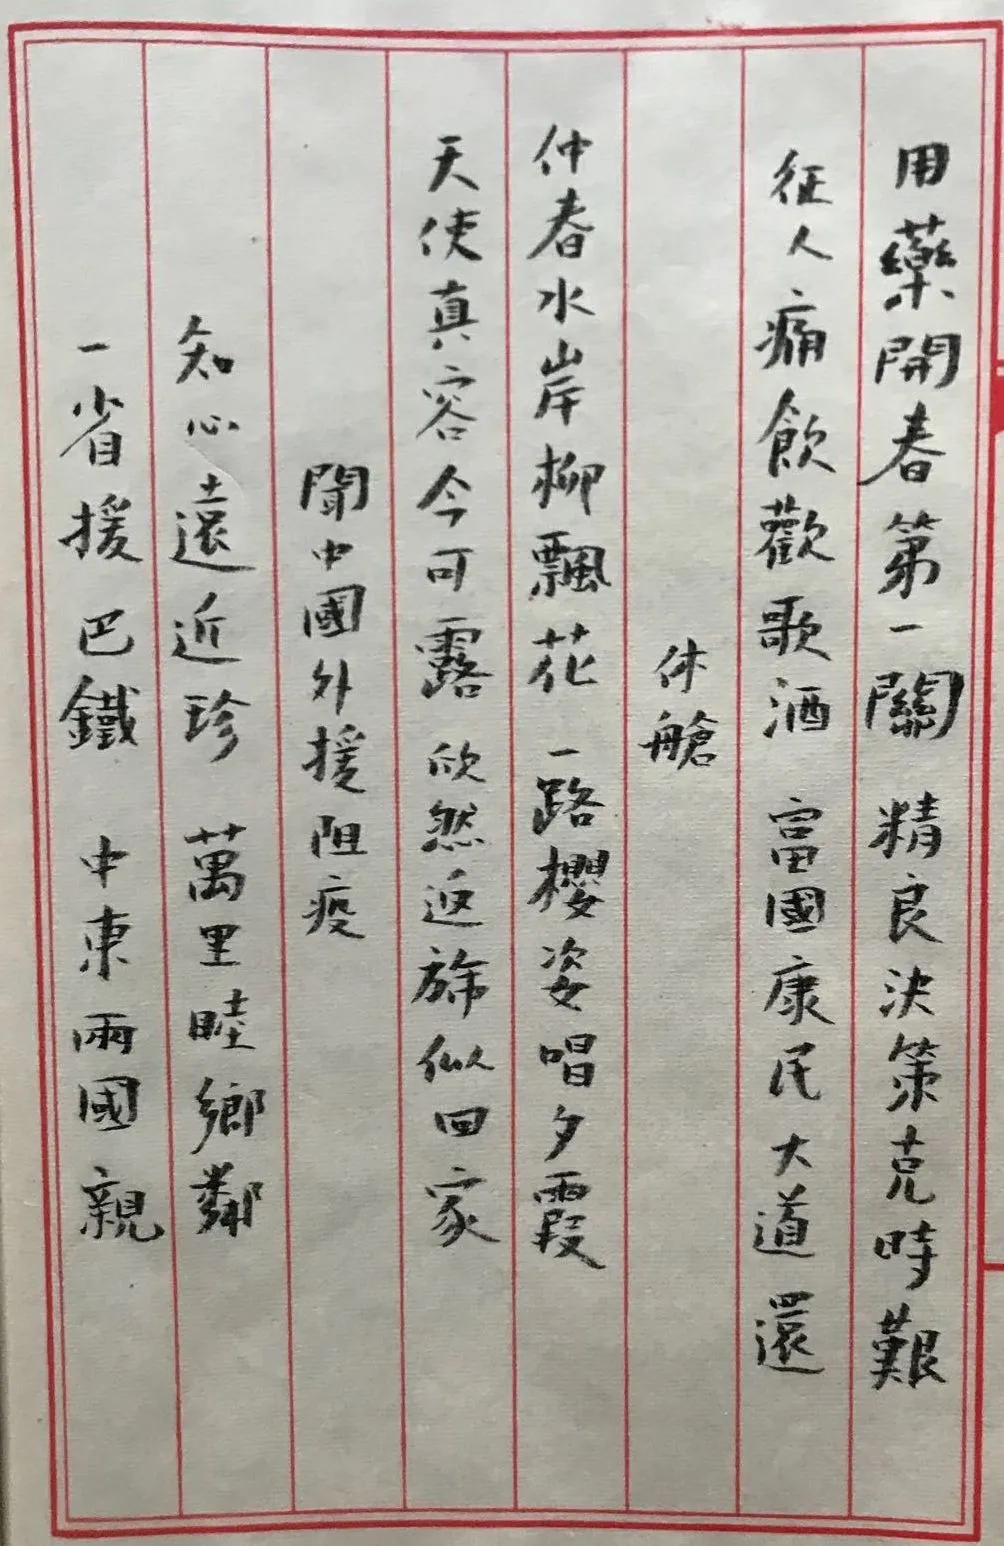 用藥開春第一關 精良決策克時艱
征人痛飲歡歌酒 富國康民大道還
休艙
仲春水岸柳飄花 一路櫻姿唱夕霞
天使真容今可露 欣然返旆似回家
聞中國外援阻疫
知心遠近珍 萬里睦鄉鄰
一省援巴鐵 中東兩國親